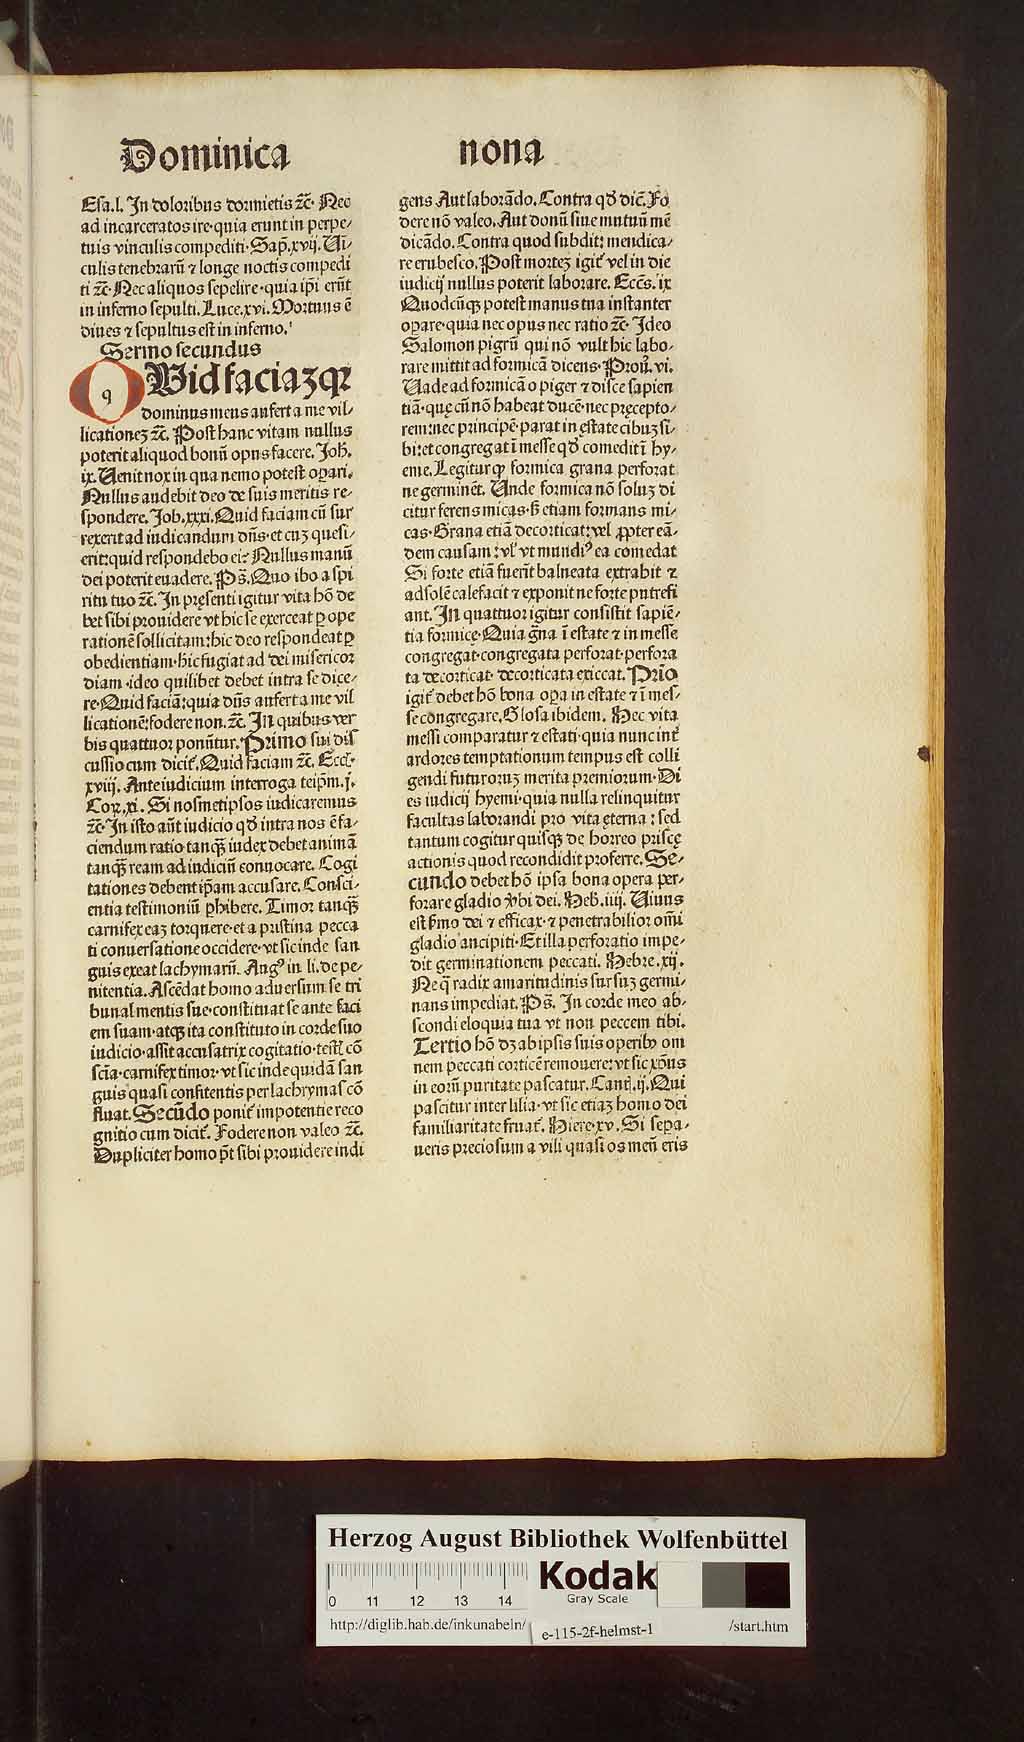 Dominica nona
Esa.l. In doloribus dormietis ⁊c̄. Nec
ad incarceratos ire·quia erunt in perpe-
tuis vinculis compediti·Sap̄.xvij. Ui-
culis tenebrarū ⁊ longe noctis compedi
ti ⁊c̄·Nec aliquos sepelire·quia ip̄i erūt
in inferno sepulti. Luce.xvi. Mortuus ē
diues ⁊ sepultus est in inferno.
Sermo secundus
QVid faciaꝫ qꝛ
dominus meus aufert a me vil-
licationeꝫ ⁊c̄. Post hanc vitam nullus
poterit aliquod bonū opus facere. Joh̄.
ix. Uenit nox in qua nemo potest oꝑari.
Nullus audebit deo de suis meritis re-
spondere. Job.xxxi. Quid faciam cū sur
rexerit ad iudicandum dn̄s·et cuꝫ quesi-
erit:quid respondebo ei: Nullus manū
dei poterit euadere. Ps̄. Quo ibo a spi
ritu tuo ⁊c̄. In pręsenti igitur vita hō de
bet sibi prouidere vt hic se exerceat ꝑ ope
rationē sollicitam:hic deo respondeat ꝑ
obedientiam·hic fugiat ad dei misericor
diam·ideo quilibet debet intra se dice-
re·Quid faciā:quia dn̄s aufert a me vil
licationē:fodere non.⁊c̄. In quibus ver
bis quattuor ponūtur. Primo sui dis
cussio cum dicit̄. Quid faciam ⁊c̄. Eccl̄·
xviij. Ante iudicium interroga teip̄m.j.
Coꝝ.xi. Si nosmetipsos iudicaremus
⁊c̄·In isto aūt iudicio qd̄ intra nos ē fa-
ciendum ratio tanqȝ iudex debet animā
tanqȝ ream ad iudiciū conuocare. Cogi
tationes debent ip̄am accusare. Consci-
entia testimoniū ꝑhibere. Timor tanqȝ
carnifex eaꝫ torquere·et a pristina pecca
ti conuersatione occidere·vt sic inde san
guis exeat lachymarū. Augꝰ in li. de pe-
nitentia. Ascēdat homo aduersum se tri
bunal mentis sue·constituat se ante faci
em suam·atqȝ ita constituto in corde suo
iudicio·assit accusatrix cogitatio·test̄ cō
scīa·carnifex timor·vt sic inde quidā san
guis quasi confitentis per lachrymas cō
fluat. Secūdo ponit̄ impotentie reco
gnitio cum dicit̄. Fodere non valeo ⁊c̄.
Dupliciter homo pōt sibi prouidere indi
gens Aut laborādo. Contra qd̄ dic̄. Fo
dere nō valeo. Aut donū siue mutuū mē
dicādo. Contra quod subdit: mendica-
re erubesco. Post morteꝫ igit̄ vel in die
iudicij nullus poterit laborare. Eccēs. ix
Quodcūqȝ potest manus tua instanter
oꝑare·quia nec opus nec ratio ⁊c̄· Ideo
Salomon pigrū qui nō vult hic labo-
rare mittit ad formicā dicens·Prou̾. vi.
Uade ad formicā o piger ⁊ disce sapien
tiā·quę cū nō habeat ducē·nec pręcepto-
rem:nec principē·parat in ęstate cibuꝫ si-
bi:et congregat ī messe qd̄ comedit ī hy-
eme. Legitur qȝ formica grana perforat
ne germinēt. Unde formica nō soluꝫ di
citur ferens micas·s̄ etiam formans mi-
cas·Grana etiā decorticat:vel ꝓpter eā-
dem causam:vl̓ vt mundiꝰ ea comedat
Si forte etiā fuerīt balneata extrahit ⁊
ad solē calefacit ⁊ exponit ne forte putrefi
ant. In quattuor igitur consistit sapiē-
tia formicę·Quia g̃na ī estate ⁊ in messe
congregat·congregata perforat·perfora
ta decorticat·decorticata exiccat. Prīo
igit̄ debet hō bona oꝑa in estate ⁊ ī mes-
se congregare. Glosa ibidem. Hec vita
messi comparatur ⁊ estati·quia nunc int̄
ardores temptationum tempus est colli
gendi futuroruꝫ merita premiorum·Di
es iudicij hyemi·quia nulla relinquitur
facultas laborandi pro vita ęterna: sed
tantum cogitur quisqȝ de horreo priscę
actionis quod recondidit proferre. Se-
cundo debet hō ipsa bona opera per-
forare gladio v̾bi dei. Heb̄. iiij. Uiuus
est s̾mo dei ⁊ efficax·⁊ penetrabilior om̄i
gladio ancipiti·Et illa perforatio impe-
dit germinationem peccati. Hebre. xij.
Ne q̄ radix amaritudinis sursuꝫ germi-
nans impediat. Ps̄. In corde meo ab-
scondi eloquia tua vt non peccem tibi.
Tertio hō dꝫ ab ipsis suis operibꝰ om
nem peccati corticē remouere:vt sic xp̄us
in eorū puritate pascatur. Cant̄. ij. Qui
pascitur inter lilia·vt sic etiaꝫ homo dei
familiaritate fruat̄. Hiere·xv. Si sepa-
ueris preciosum a vili quasi os meū eris
q
Herzog August Bibliothek Wolfenbüttel
0 11 12 13 14
Kodak
Gray Scale
http://diglib.hab.de/inkunabeln/ e-115-2f-helmst-1 /start.htm